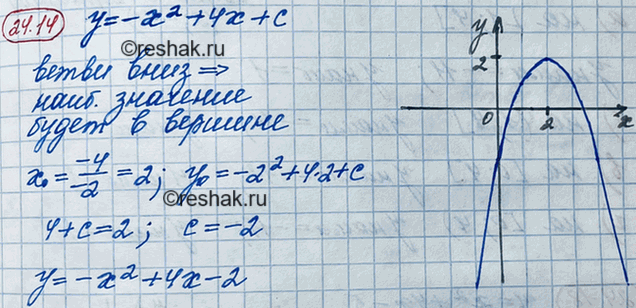 24.14 y=-x²+4x+c
©reshak.ru
ветви вниз ⇒
наиб. значение
будет в вершине
x₀ = -4/-2 = 2; y₀ = -2²+4·2+c
©reshak.ru
4+c=2; c=-2
y=-x²+4x-2
y
2
0 2 x